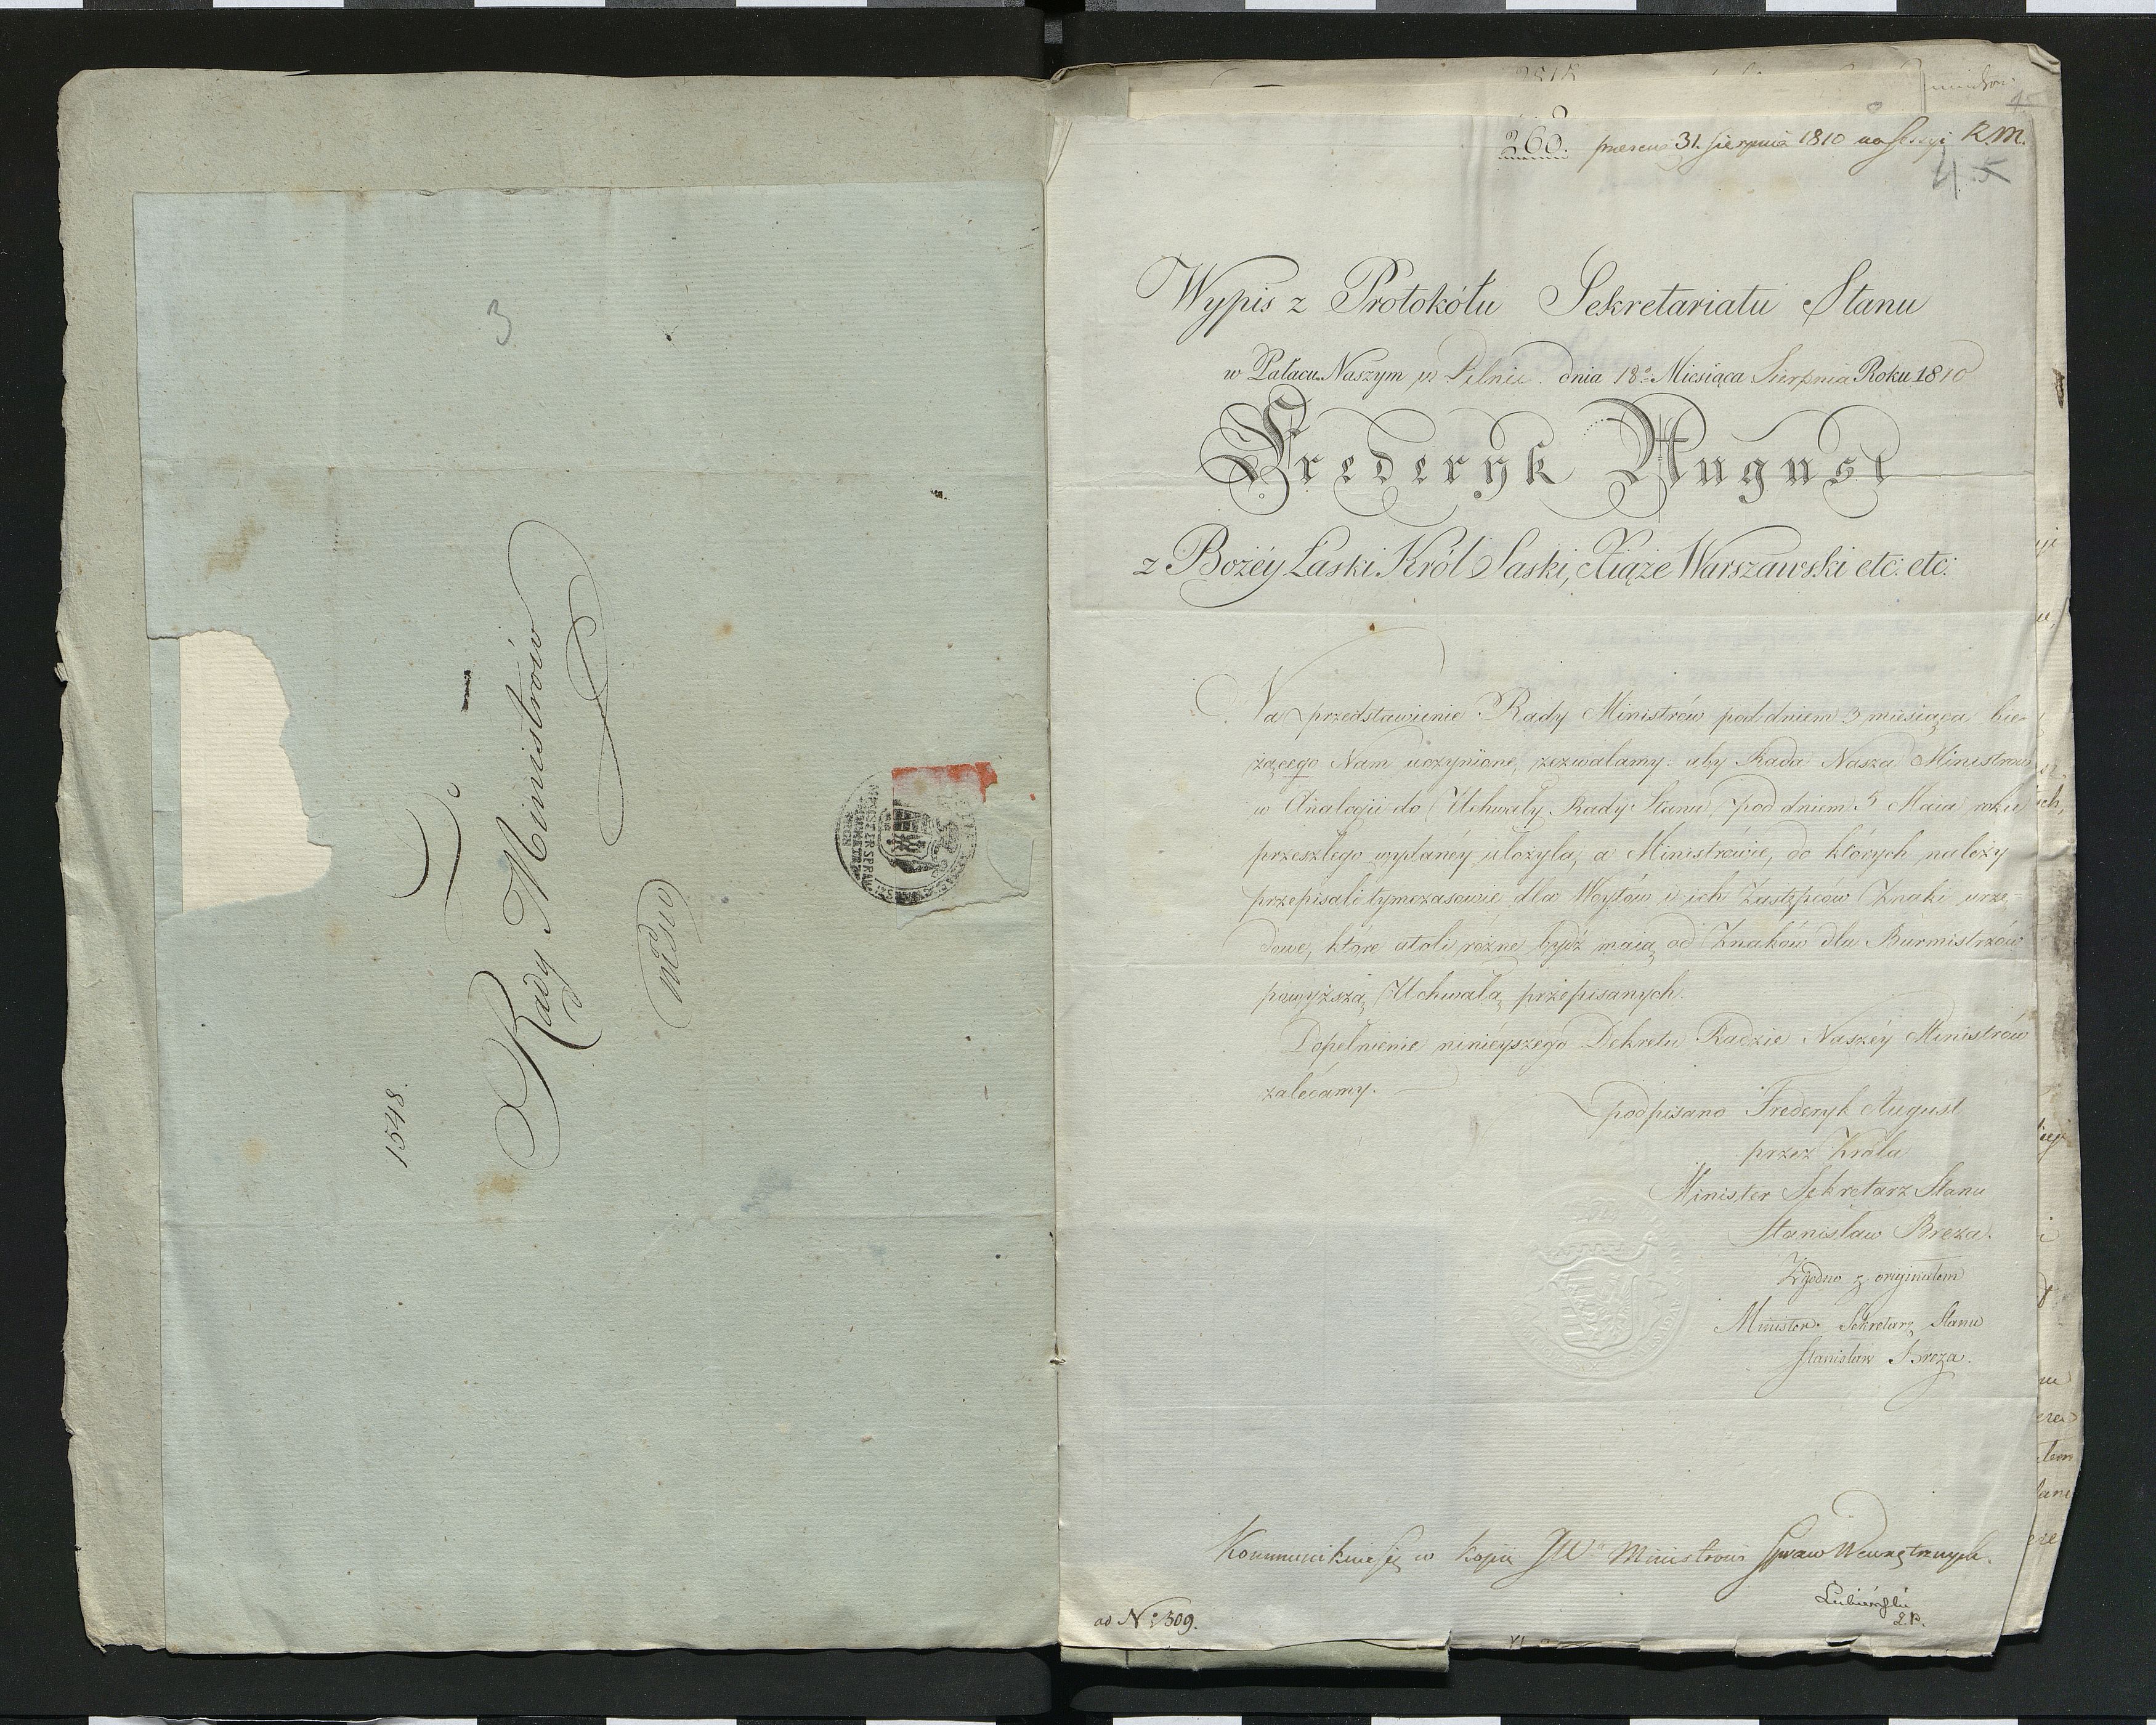 3
1548.
Do
Rady Ministrów
MINISTER SPRAW
WEWNĘTRZ
NYCH
260. 31. Sierpnia 1810 na Sessyi R.M.
4 5
Wypis z Protokółu Sekretariatu Stanu
w Pałacu Naszym w Pilnic. dnia 18º Miesiąca Sierpnia Roku 1810
Frederyk August
z Bożéy Łaski Król Saski, Xiąże Warszawski etc: etc:
Na przedstawienie Rady Ministrów pod dniem 3 miesiąca bie-
żącego Nam uczynione, zezwalamy: aby Rada Nasza Ministrów
w Analogii do Uchwały Rady Stanu, pod dniem 5 Maia roku
przeszłego wydanéy ułożyła, a Ministrowie, do których należy
przepisali tymczasowie dla Woytów i ich Zastępców Znaki urzę-
dowe, które atoli rożne bydź maią od Znaków dla Burmistrzów
powyższą Uchwałą przepisanych.
Dopełnienie ninieyszego Dekretu Radzie Naszéy Ministrów
zalecamy.
podpisano Frederyk August
przez Króla
Minister Sekretarz Stanu
Stanisław Breza.
Zgodno z oryginałem
Minister Sekretarz Stanu
Stanisław Breza.
Kommunikuie się w kopii JWu Ministrowi Spraw Wewnętrznych.
Łubieński
ad Nº 509.